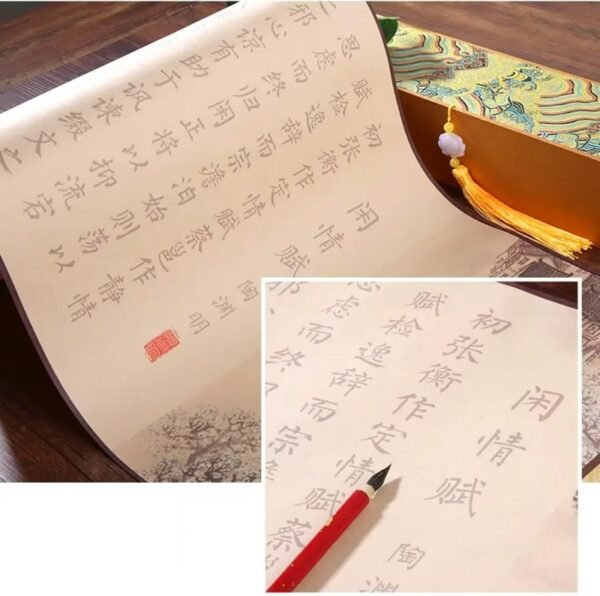 闲情赋
陶渊明
初张衡作定情赋蔡邕作静情
赋检逸辞而宗澹泊始则荡以
思虑而终归闲正将以抑流宕
邪心谅有助于讽谏缀文之
闲情赋
陶渊
初张衡作定情赋蔡
赋检逸辞而宗
虑而终